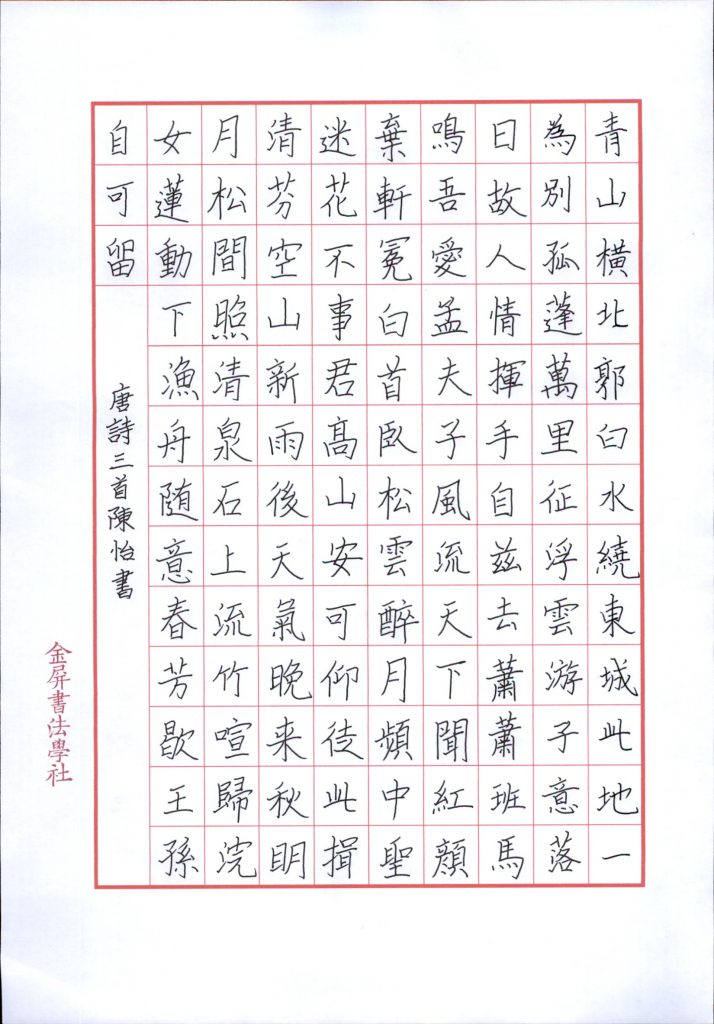 青山橫北郭白水繞東城此地一
為別孤蓬萬里征浮雲游子意落
日故人情揮手自兹去蕭蕭班馬
鳴吾愛孟夫子風流天下聞紅顏
棄軒冕白首臥松雲醉月頻中聖
迷花不事君高山安可仰徒此揖
清芬空山新雨後天氣晚来秋明
月松間照清泉石上流竹喧歸浣
女蓮動下漁舟随意春芳歇王孫
自可留
唐詩三首陳怡書
金屏書法學社